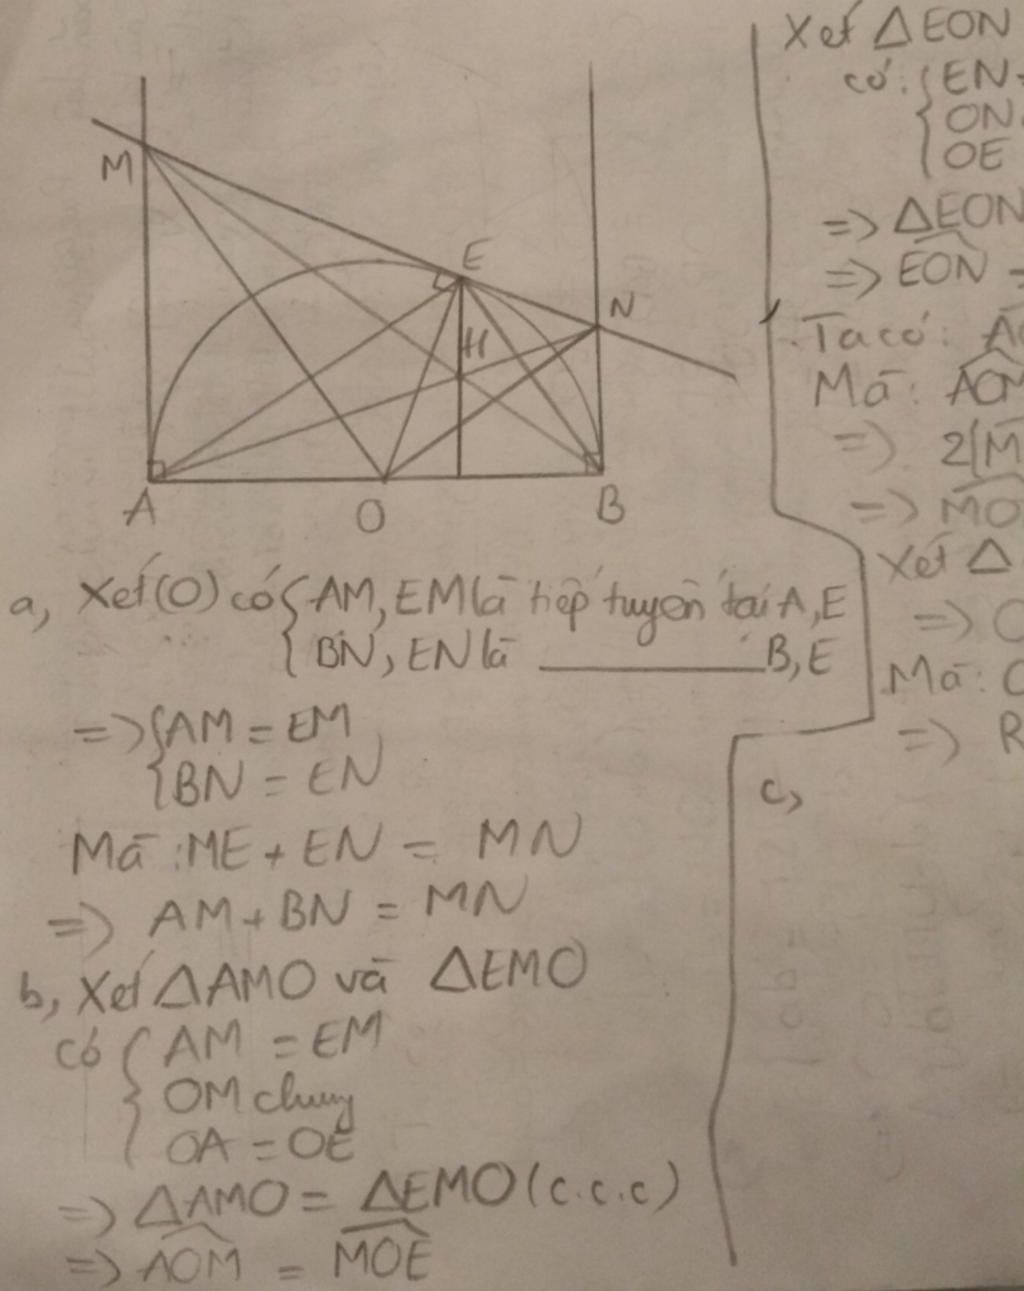 M
E
N
H
A
O
B
a, Xét (O) có { AM, EM là tiếp tuyến tại A, E
{ BN, EN là ________ B, E
=> { AM = EM
{ BN = EN
Mà : ME + EN = MN
=> AM + BN = MN
b, Xét ΔAMO và ΔEMO
có { AM = EM
OM chung
OA = OE
=> ΔAMO = ΔEMO (c.c.c)
=> \widehat{AOM} = \widehat{MOE}
Xét ΔEON
có : { EN
ON
OE
=> ΔEON
=> \widehat{EON} =
Ta có :
Mà :
=> 2(
=>
Xét Δ
=>
Mà :
=> R
c,